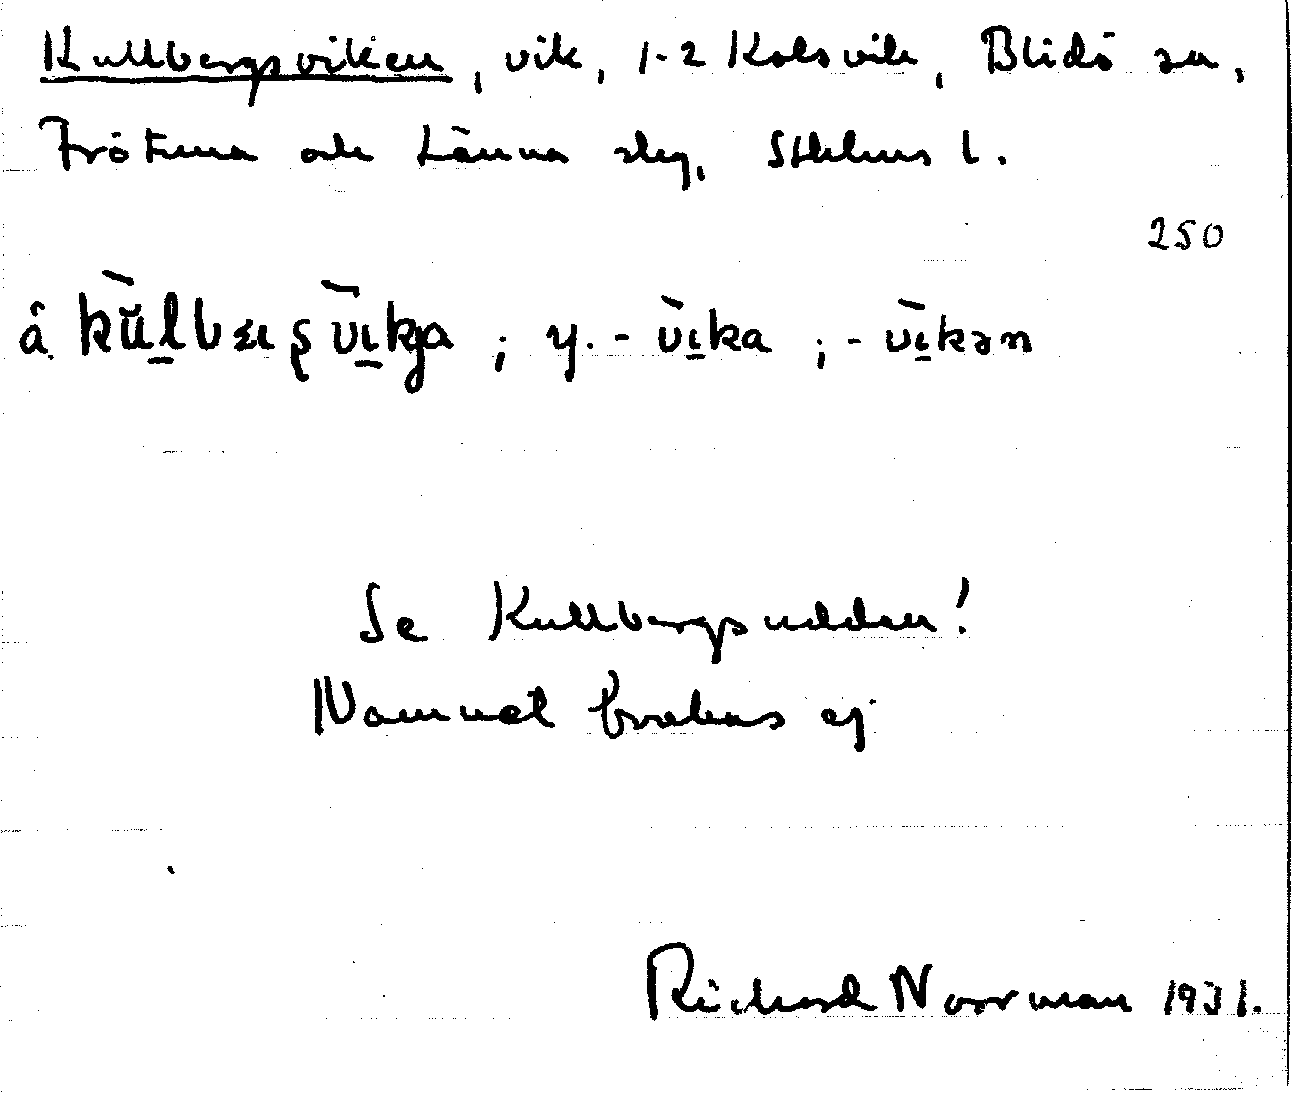 Kullbergsviken, vik, 1-2 Kolsvik, Blidö sn,
Frötuna och Länna slg, Sthlms l.
250
å kùlbærsvìkja ; y. - vìka ; - vìkən
Se Kullbergsudden!
Namnet brukas ej
Richard Norrman 1931.